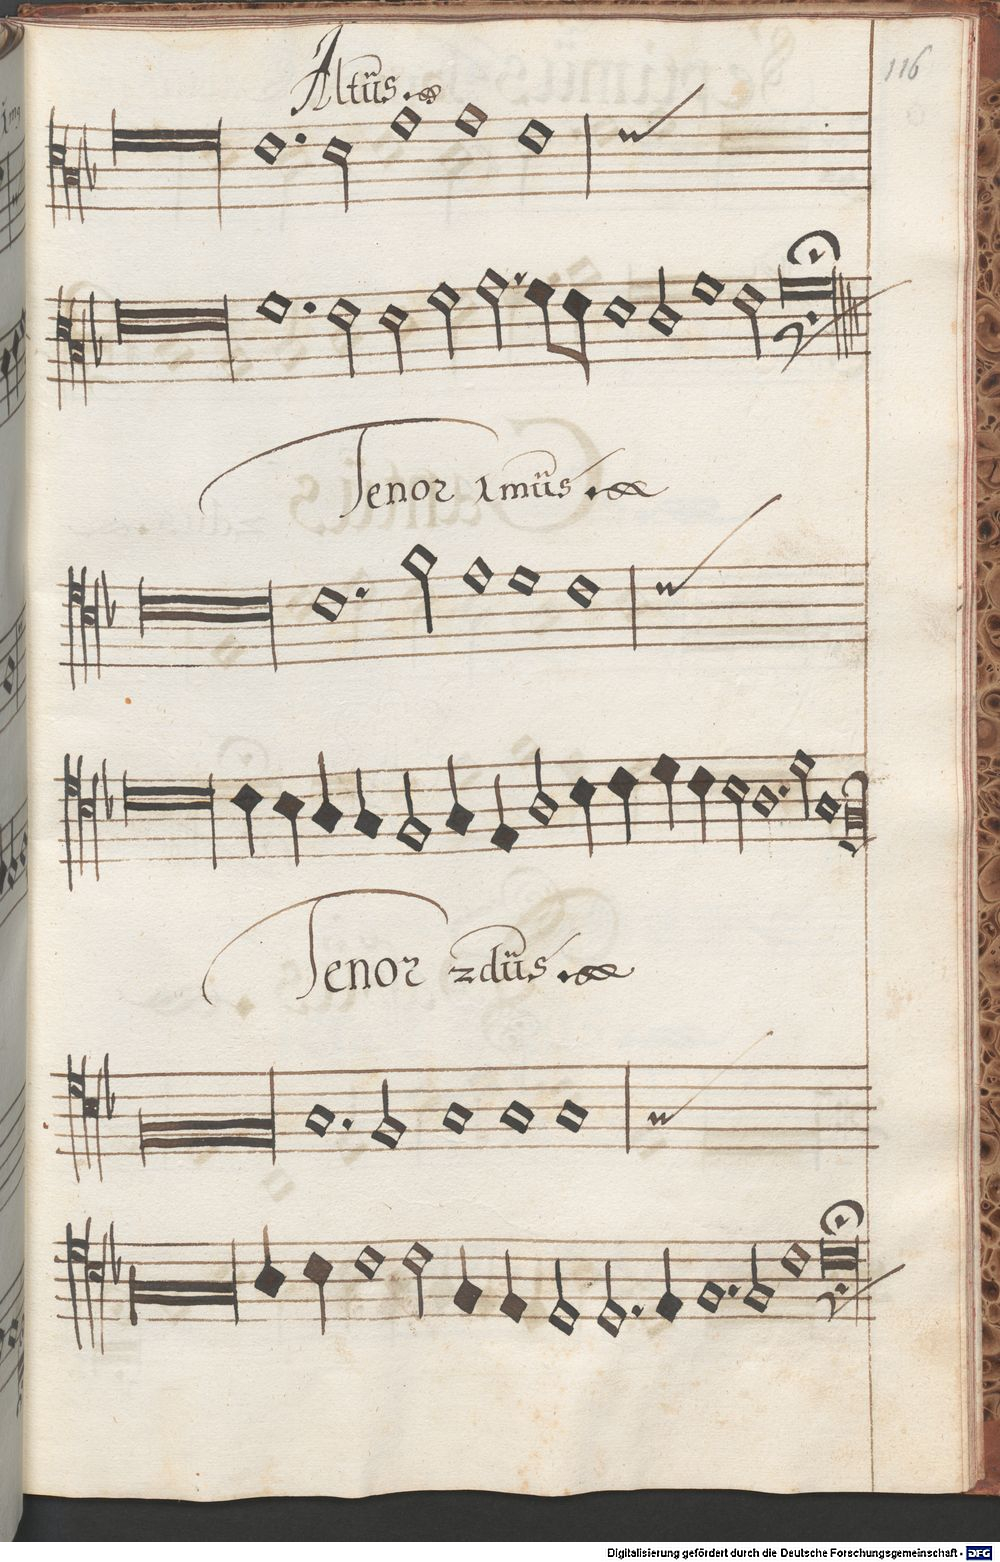 116
Altüs.
Tenor 1müs.
Tenor 2düs.
Digitalisierung gefördert durch die Deutsche Forschungsgemeinschaft - DFG